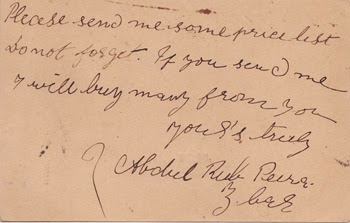 Please send me some price list
Do not forget. If you send me
I will buy many from you
your's truly
Abdul